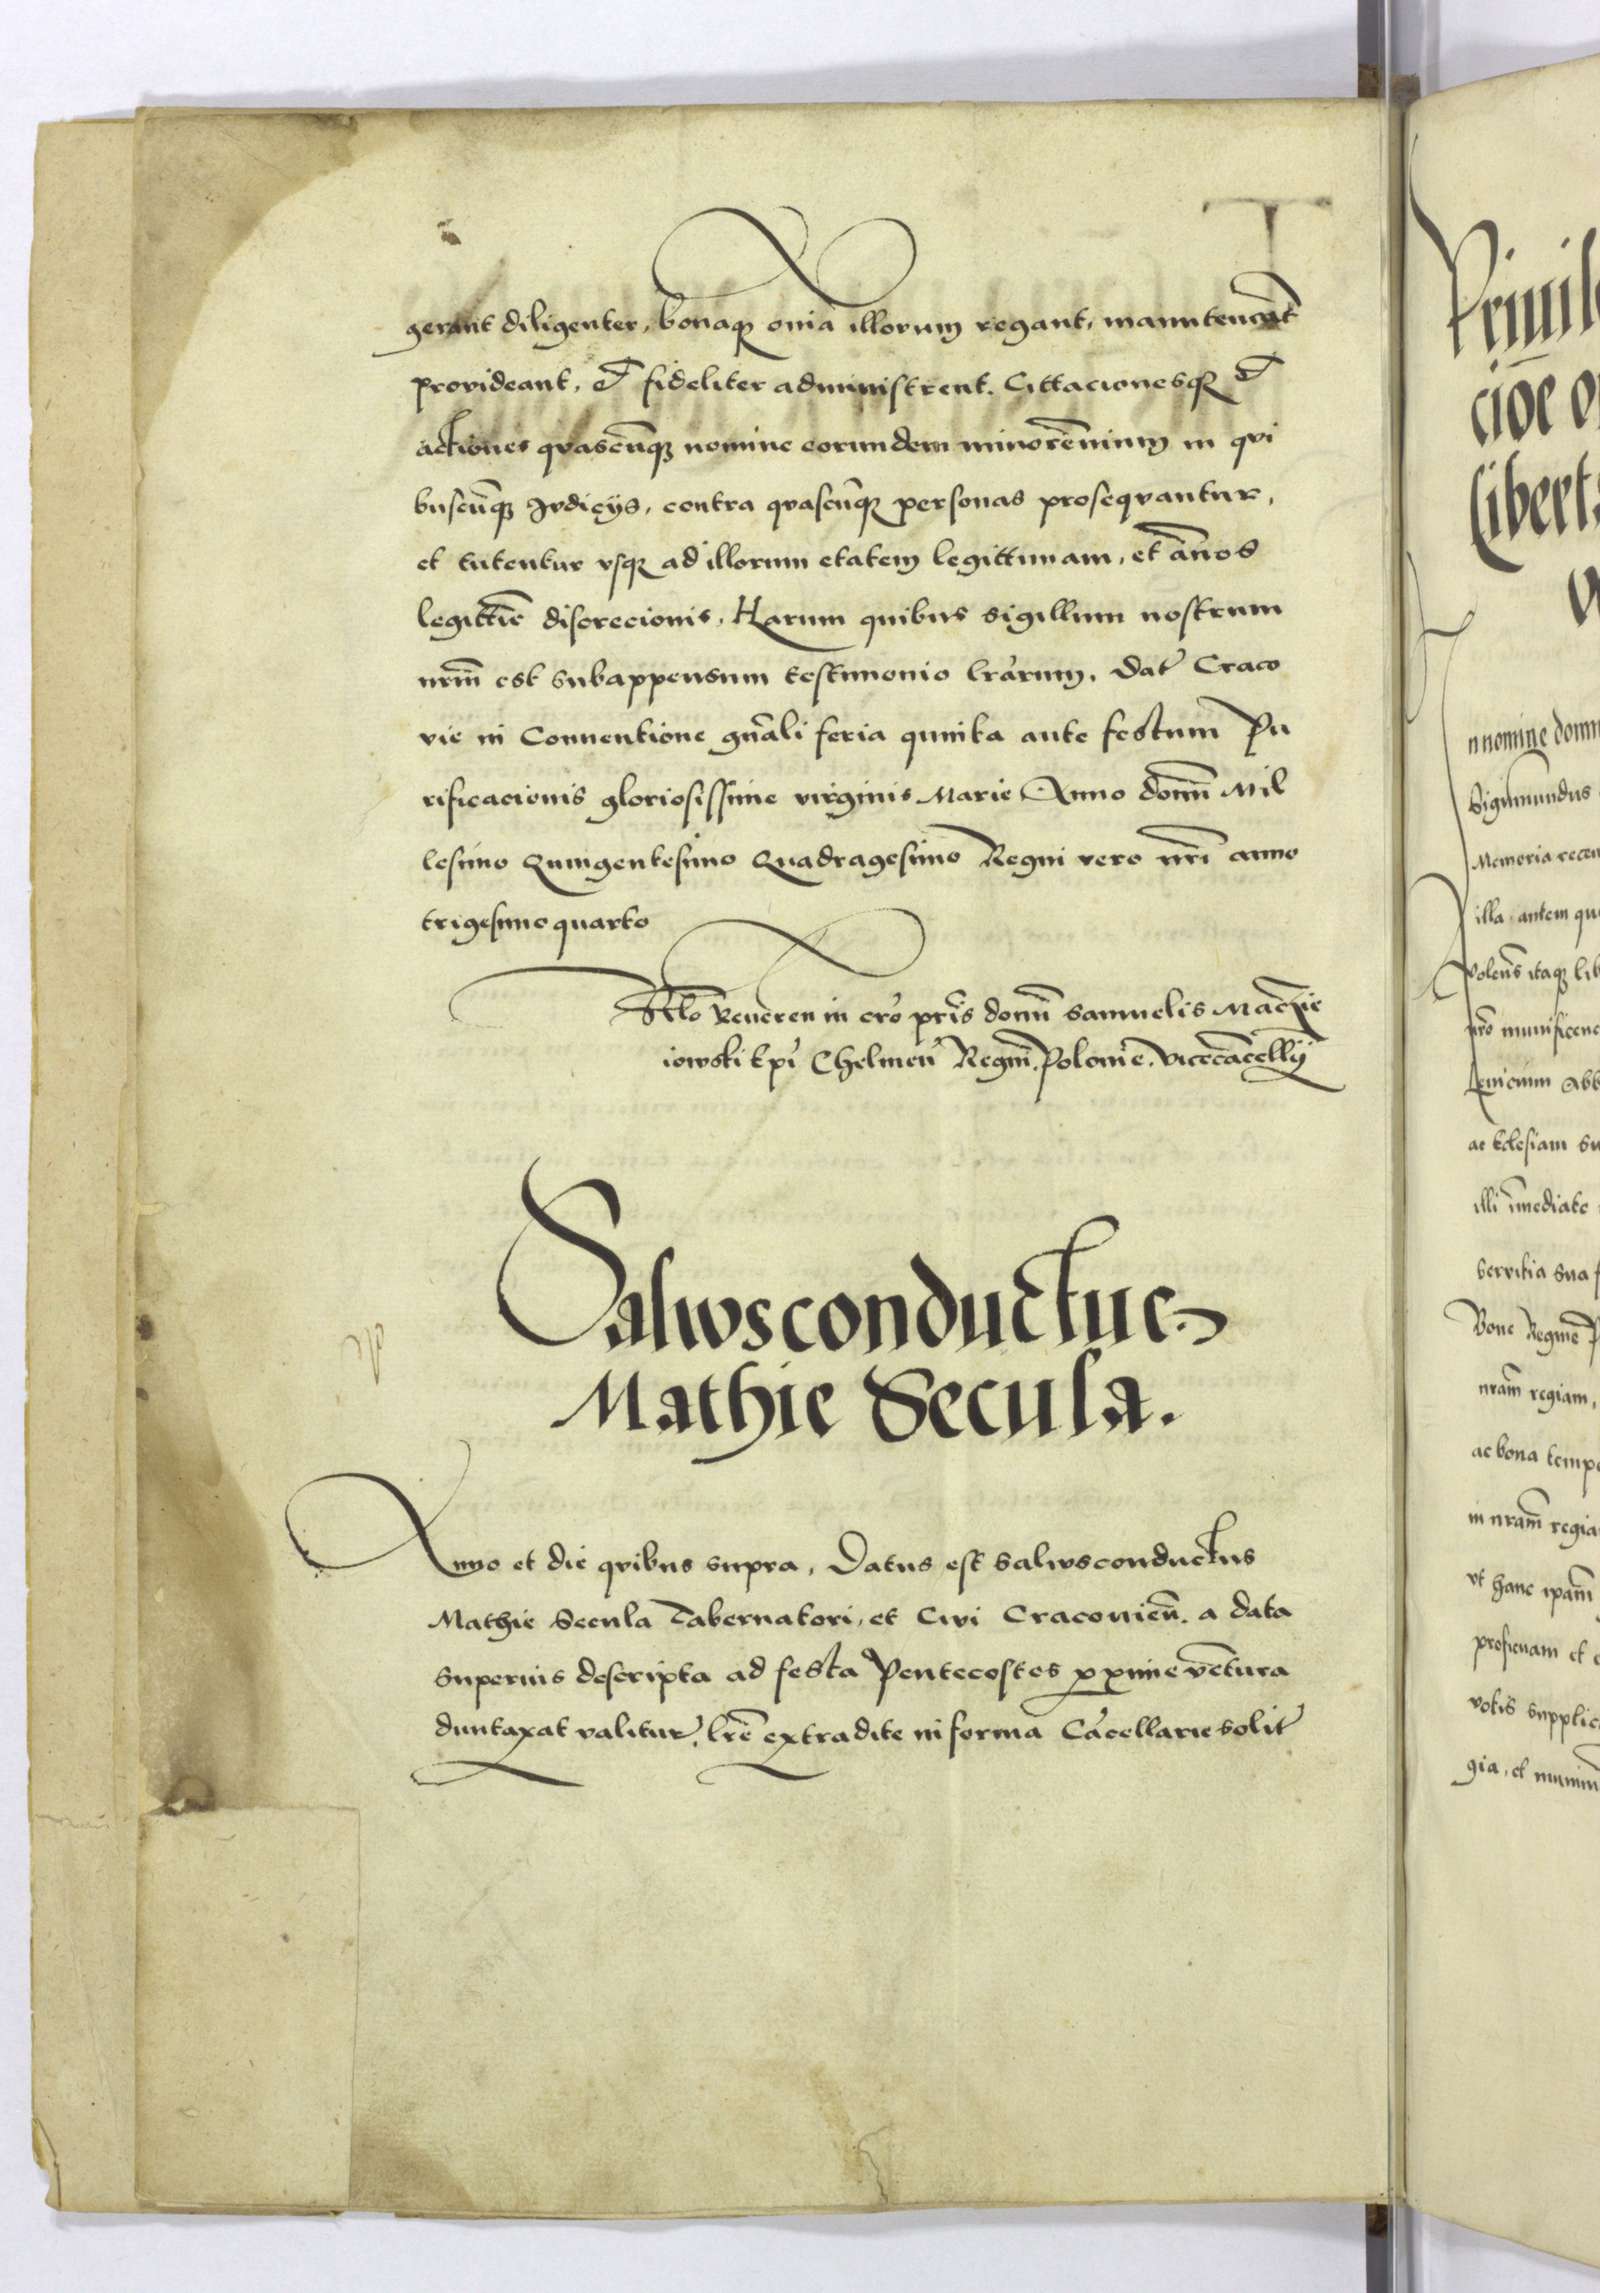 gerant diligenter, bonaqȝ omīa illorum regant, manuteneāt
provideant, et fideliter administrent. Cittacionesqȝ et
actiones qvascūqȝ nomine eorundem minorēnium in qvi
buscūqȝ Jvdicijs, contra qvascūqȝ personas proseqvantur,
et tutentur vsqȝ ad illorum etatem legittimam, et āños
legittīe discrecionis, Harum quibus sigillum nostrum
nr̄m est subappensum testimonio lr̄arum, Dat̄ Craco
vie in Conuentione gn̄ali feria quinta ante festum Pu
rificacionis gloriosissime virginis Marie Anno domī Mil
lesimo Quingentesimo Quadragesimo Regni vero nr̄i anno
trigesimo quarto
Rlo Reueren in cr̄o pr̄is domī Samuelis Macie
iowski Ep̄i Chelmen̄ Regni Polonie Vicecācellij
Salwsconductus
Mathie Secula.
Anno et die qvibus supra, Datus est salwsconductus
Mathie Secula Tabernatori, et Civi Cracouien̄. a data
superius descripta ad festa Pentecostes proxime vētura
duntaxat valitur̄, lr̄e extradite in forma Cācellarie solit̄
Priuil
cioē
Libert
n nomine domi
Sigismundus
Memoria recen
illa autem qu
volens itaqȝ lib
nr̄o munificenc
abb
ac Eclesiam su
illi īmediate
servitia sua f
Bone Regine P
nr̄am regiam,
ac bona tempo
in nr̄am regia
vt hanc ipam̄
votis supplic
gia, et munim